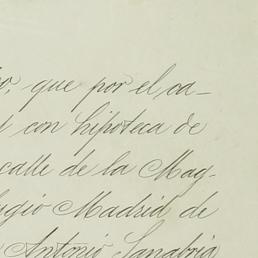 que por el ca-
con hipoteca de
calle de la Mag-
Madrid de
Antonio Sanabria